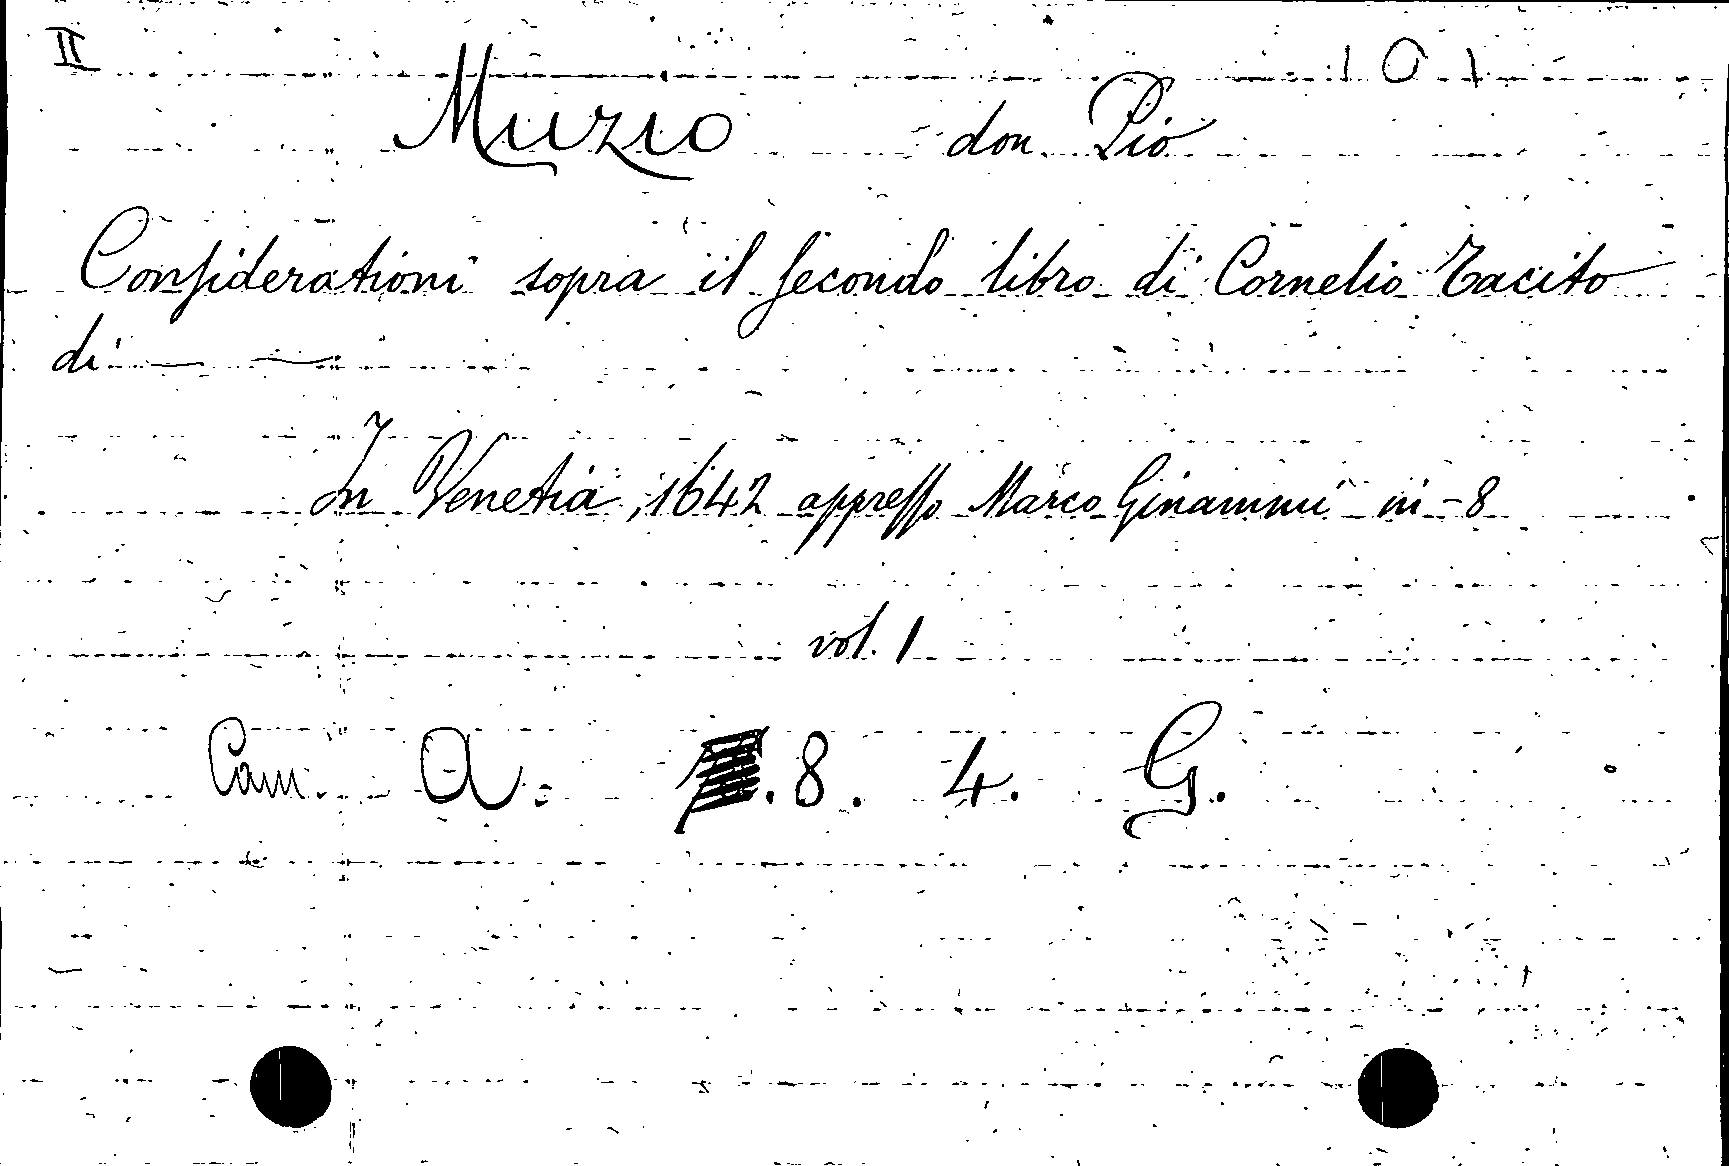 II
101
Muzio don Pio
Conſiderationi sopra il ſecondo libro di Cornelio Tacito
di —— ——
In Venetia, 1642 appreſſo Marco Ginammi in-8
vol. 1
Cam. A. . 8. 4. G.